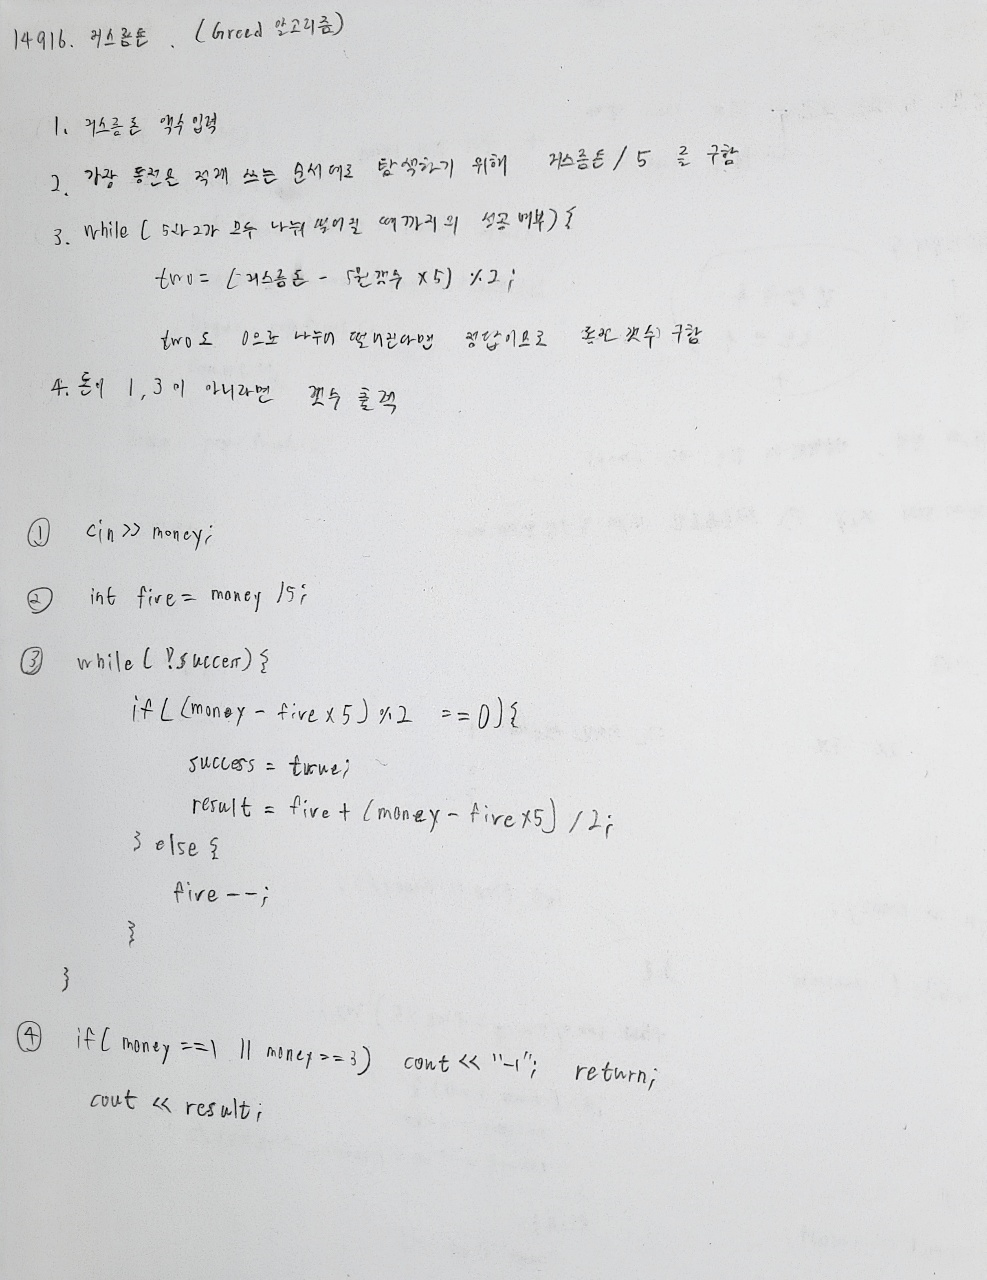 14916. 거스름돈. (Greed 알고리즘)
1. 거스름돈 액수 입력
2. 가장 동전을 적게 쓰는 순서대로 탐색하기 위해 거스름돈 / 5 를 구함
3. while ( 5와 2가 모두 나눠 떨어질 때까지의 성공 여부) {
two = (거스름돈 - 5원 갯수 x5) %2;
two도 0으로 나누어 떨어진다면 정답이므로 동전 갯수 구함
4. 돈이 1, 3이 아니라면 갯수 출력
① cin >> money;
② int five = money /5;
③ while ( !success) {
if ( (money - five x5) %2 == 0) {
success = true;
result = five + (money - five x5) /2;
} else {
five --;
}
}
④ if( money ==1 || money ==3) cout << "-1"; return;
cout << result;